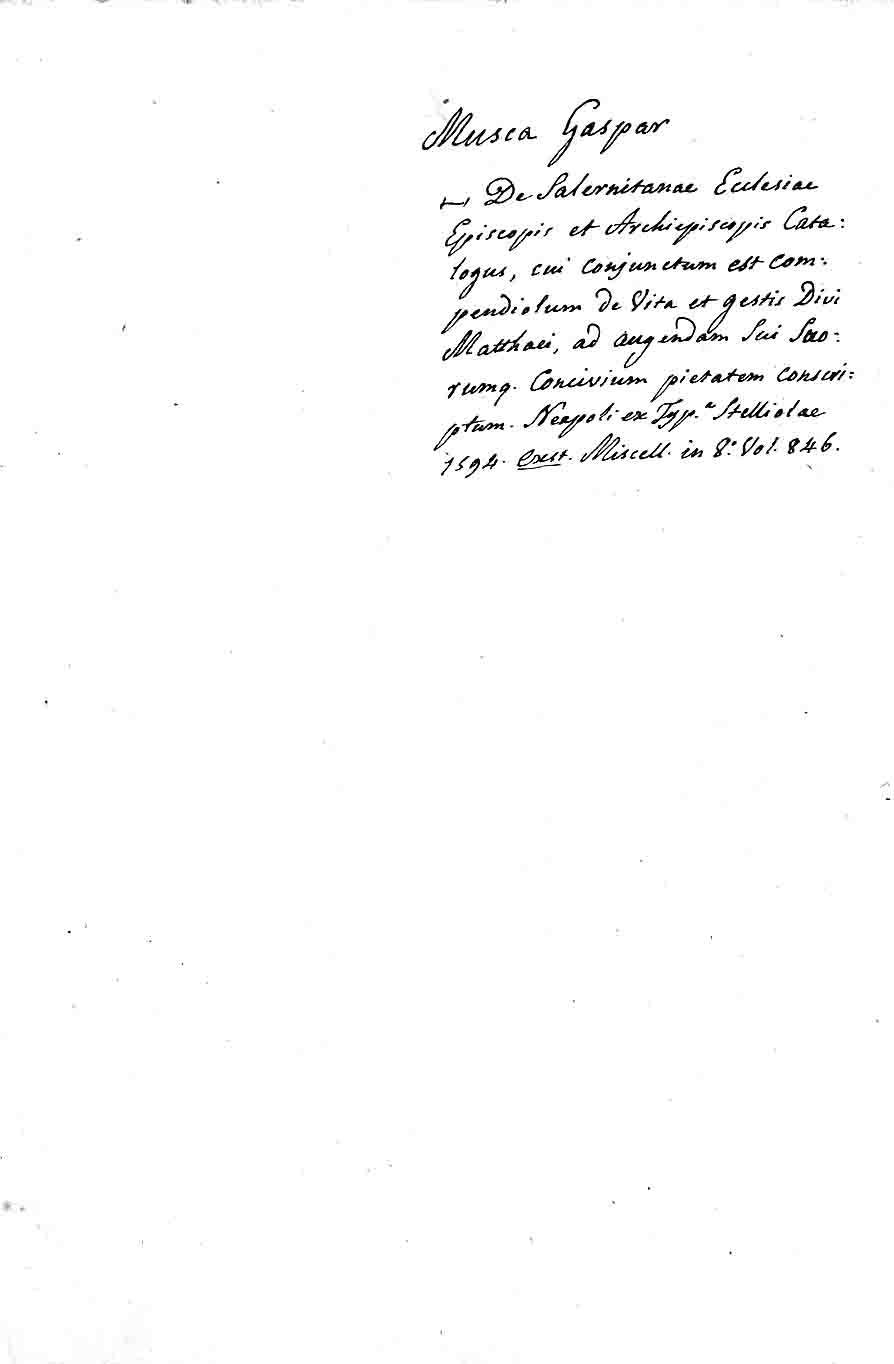 Musca Gaspar
De Salernitanae Ecclesiae
Episcopis et Archiepiscopis Cata:
logus, cui conjunctum est com:
pendiolum de Vita et gestis Divi
Matthaei, ad augendam Sui Suo:
rumq. Concivium pietatem conscri:
ptum. Neapoli ex Typ.ª Stelliolae
1594. exst. Miscell. in 8.º Vol. 846.